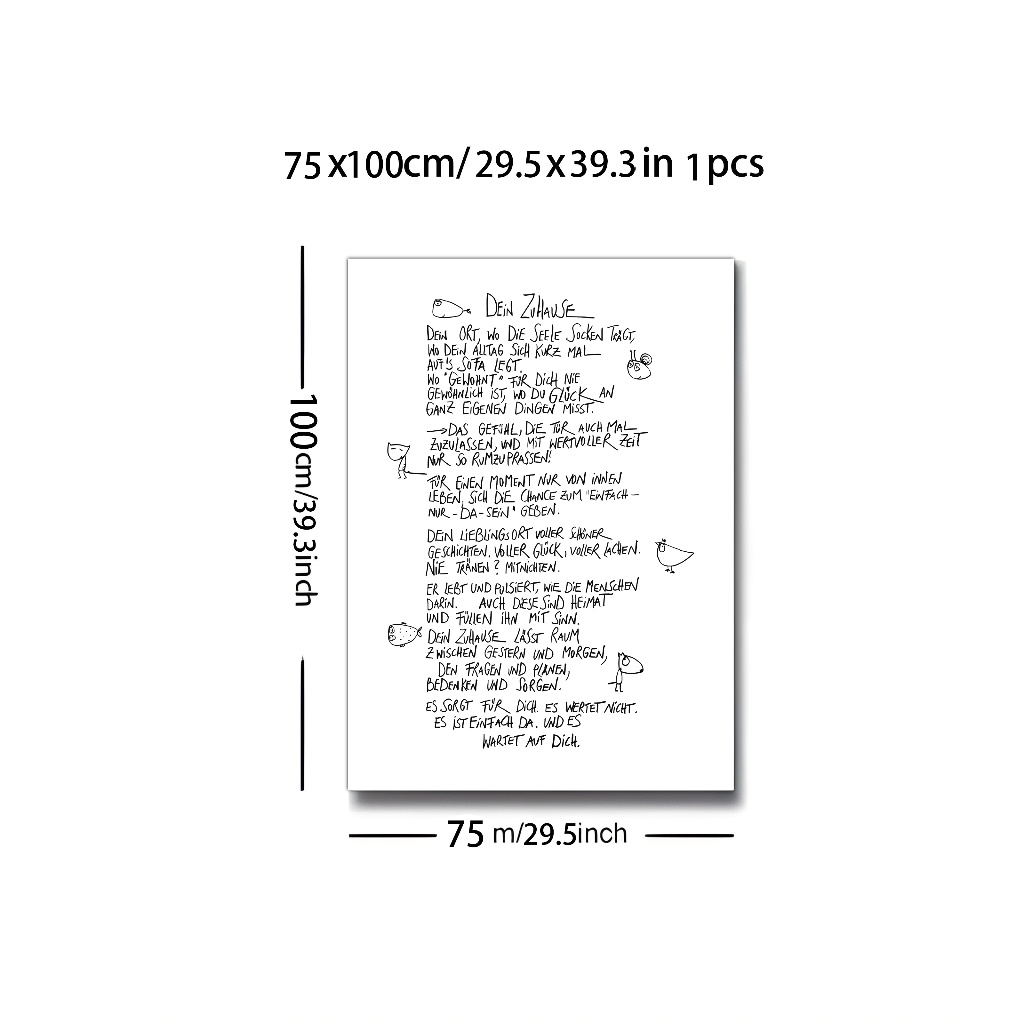 75x100cm/29.5x39.3in 1pcs
100cm/39.3inch
DEIN ZUHAUSE
DEIN ORT, WO DIE SEELE SOCKEN TRÄGT,
WO DEIN ALLTAG SICH KURZ MAL
AUF'S SOFA LEGT.
WO "GEWOHNT" FÜR DICH NIE
GEWÖHNLICH IST, WO DU GLÜCK AN
GANZ EIGENEN DINGEN MISST.
→DAS GEFÜHL, DIE TÜR AUCH MAL
ZUZULASSEN, UND MIT WERTVOLLER ZEIT
NUR SO RUMZUPRASSEN!
FÜR EINEN MOMENT NUR VON INNEN
LEBEN, SICH DIE CHANCE ZUM "EINFACH-
NUR-DA-SEIN" GEBEN.
DEIN LIEBLINGSORT VOLLER SCHÖNER
GESCHICHTEN, VOLLER GLÜCK, VOLLER LACHEN.
NIE TRÄNEN? MITNICHTEN.
ER LEBT UND PULSIERT, WIE DIE MENSCHEN
DARIN. AUCH DIESE SIND HEIMAT
UND FÜLLEN IHN MIT SINN.
DEIN ZUHAUSE LÄSST RAUM
ZWISCHEN GESTERN UND MORGEN,
DEN FRAGEN UND PLÄNEN,
BEDENKEN UND SORGEN.
ES SORGT FÜR DICH. ES WERTET NICHT.
ES IST EINFACH DA. UND ES
WARTET AUF DICH.
75 m/29.5inch